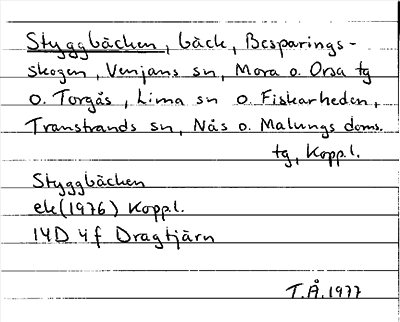 Styggbäcken, bäck, Besparings-
skogen, Venjans sn, Mora o. Orsa tg
o. Torgås, Lima sn o. Fiskarheden,
Transtrands sn, Nås o. Malungs doms.
tg, Koppl.
Styggbäcken
ek(1976) Koppl.
14D 4f Dragtjärn
T.Å.1977